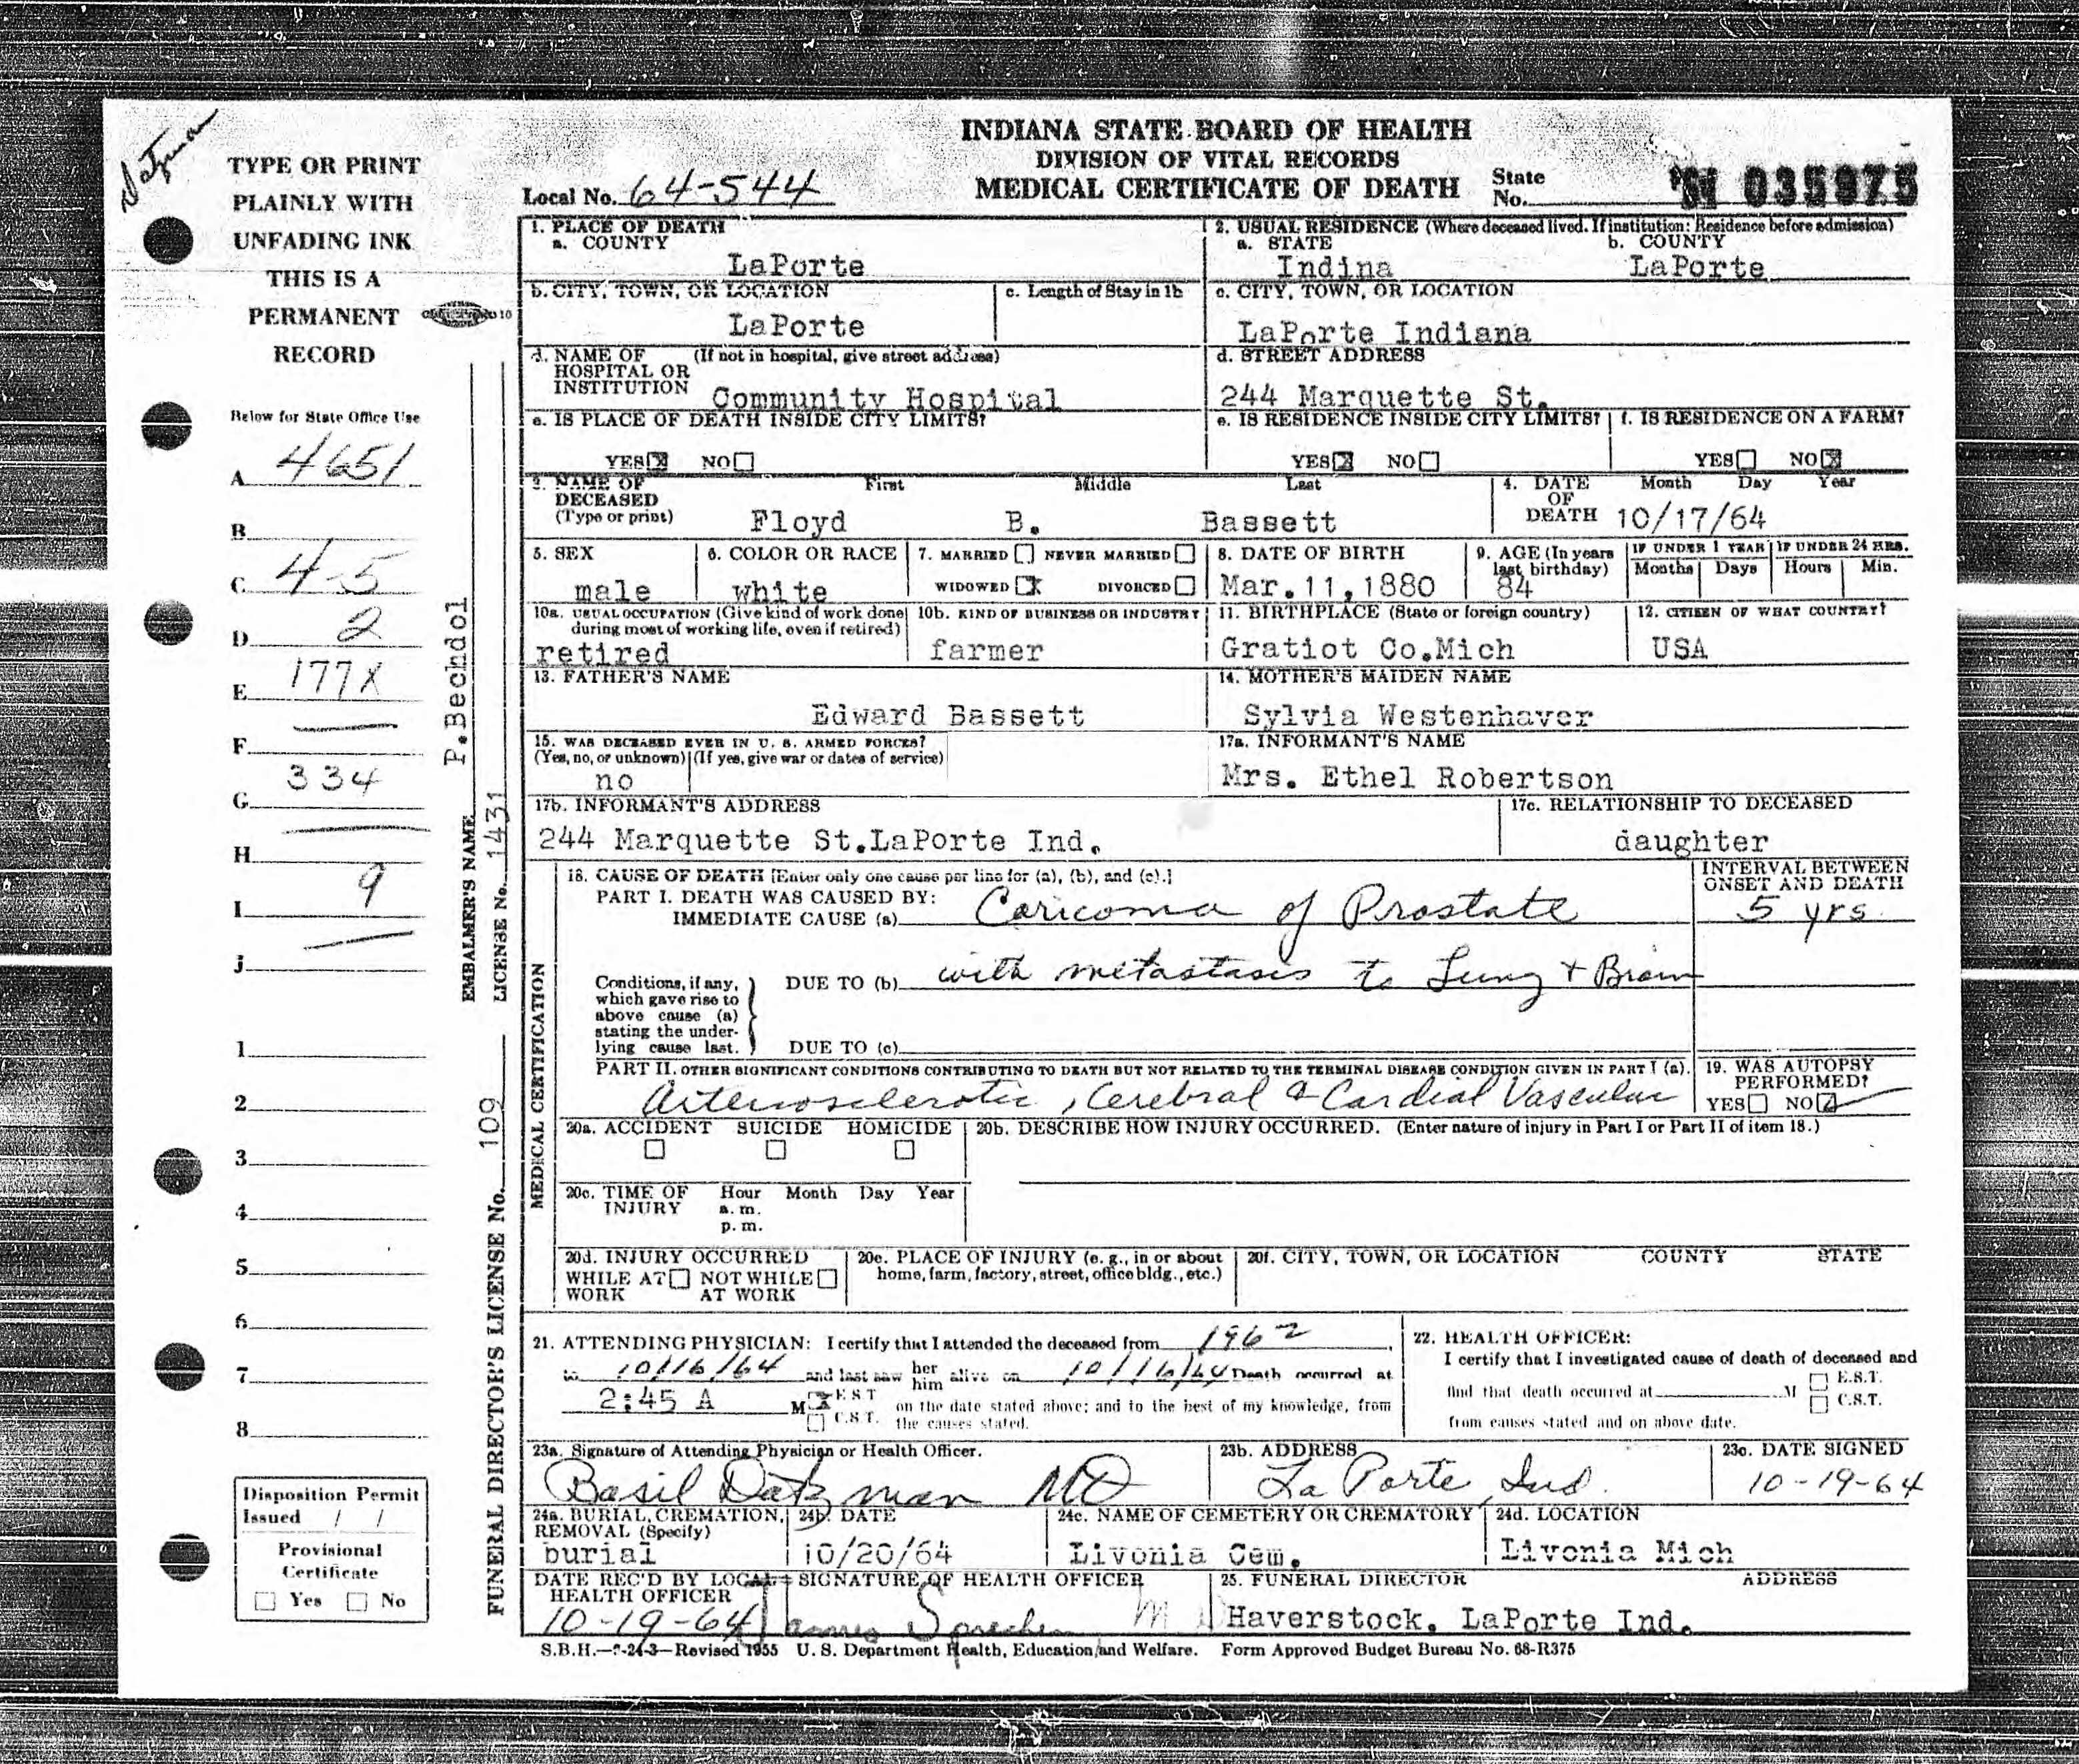 Datzman
INDIANA STATE BOARD OF HEALTH
DIVISION OF VITAL RECORDS
MEDICAL CERTIFICATE OF DEATH
Local No. 64-544
State No. 64 035975
TYPE OR PRINT
PLAINLY WITH
UNFADING INK
THIS IS A
PERMANENT
RECORD
Below for State Office Use
A 4651
B
C 4-5
D 2
E 177X
F
G 334
H
I 9
J
1
2
3
4
5
6
7
8
Disposition Permit
Issued / /
Provisional
Certificate
Yes No
EMBALMER'S NAME P.Bechdol
LICENSE No. 1431
FUNERAL DIRECTOR'S LICENSE No. 109
1. PLACE OF DEATH
a. COUNTY
LaPorte
2. USUAL RESIDENCE (Where deceased lived. If institution: Residence before admission)
a. STATE b. COUNTY
Indina LaPorte
b. CITY, TOWN, OR LOCATION c. Length of Stay in 1b
LaPorte
c. CITY, TOWN, OR LOCATION
LaPorte Indiana
d. NAME OF (If not in hospital, give street address)
HOSPITAL OR
INSTITUTION Community Hospital
d. STREET ADDRESS
244 Marquette St.
e. IS PLACE OF DEATH INSIDE CITY LIMITS?
YES X NO
e. IS RESIDENCE INSIDE CITY LIMITS? f. IS RESIDENCE ON A FARM?
YES X NO YES NO X
3. NAME OF First Middle Last
DECEASED
(Type or print) Floyd B. Bassett
4. DATE Month Day Year
OF
DEATH 10/17/64
5. SEX
male
6. COLOR OR RACE
white
7. MARRIED NEVER MARRIED
WIDOWED X DIVORCED
8. DATE OF BIRTH
Mar.11,1880
9. AGE (In years
last birthday)
84
IF UNDER 1 YEAR IF UNDER 24 HRS.
Months Days Hours Min.
10a. USUAL OCCUPATION (Give kind of work done
during most of working life, even if retired)
retired
10b. KIND OF BUSINESS OR INDUSTRY
farmer
11. BIRTHPLACE (State or foreign country)
Gratiot Co.Mich
12. CITIZEN OF WHAT COUNTRY?
USA
13. FATHER'S NAME
Edward Bassett
14. MOTHER'S MAIDEN NAME
Sylvia Westenhaver
15. WAS DECEASED EVER IN U. S. ARMED FORCES?
(Yes, no, or unknown) (If yes, give war or dates of service)
no
17a. INFORMANT'S NAME
Mrs. Ethel Robertson
17b. INFORMANT'S ADDRESS
244 Marquette St.LaPorte Ind.
17c. RELATIONSHIP TO DECEASED
daughter
MEDICAL CERTIFICATION
18. CAUSE OF DEATH [Enter only one cause per line for (a), (b), and (c).]
PART I. DEATH WAS CAUSED BY:
IMMEDIATE CAUSE (a) Caricoma of Prostate
INTERVAL BETWEEN
ONSET AND DEATH
5 yrs
Conditions, if any,
which gave rise to
above cause (a)
stating the under-
lying cause last.
DUE TO (b) with metastasis to Lung + Brain
DUE TO (c)
PART II. OTHER SIGNIFICANT CONDITIONS CONTRIBUTING TO DEATH BUT NOT RELATED TO THE TERMINAL DISEASE CONDITION GIVEN IN PART I (a).
Arteriosclerotic, Cerebral & Cardial Vascular
19. WAS AUTOPSY
PERFORMED?
YES NO
20a. ACCIDENT SUICIDE HOMICIDE
20b. DESCRIBE HOW INJURY OCCURRED. (Enter nature of injury in Part I or Part II of item 18.)
20c. TIME OF Hour Month Day Year
INJURY a. m.
p. m.
20d. INJURY OCCURRED
WHILE AT NOT WHILE
WORK AT WORK
20e. PLACE OF INJURY (e. g., in or about
home, farm, factory, street, office bldg., etc.)
20f. CITY, TOWN, OR LOCATION COUNTY STATE
21. ATTENDING PHYSICIAN: I certify that I attended the deceased from 1962,
to 10/16/64 and last saw her him alive on 10/16/64 Death occurred at
2:45 A M X E S T C.S.T. on the date stated above; and to the best of my knowledge, from
the causes stated.
22. HEALTH OFFICER:
I certify that I investigated cause of death of deceased and
find that death occurred at M E.S.T. C.S.T.
from causes stated and on above date.
23a. Signature of Attending Physician or Health Officer.
Basil Datzman MD
23b. ADDRESS
La Porte, Ind.
23c. DATE SIGNED
10-19-64
24a. BURIAL, CREMATION,
REMOVAL (Specify)
burial
24b. DATE
10/20/64
24c. NAME OF CEMETERY OR CREMATORY
Livonia Cem.
24d. LOCATION
Livonia Mich
DATE REC'D BY LOCAL
HEALTH OFFICER
10-19-64
SIGNATURE OF HEALTH OFFICER
M D
25. FUNERAL DIRECTOR ADDRESS
Haverstock. LaPorte Ind.
S.B.H.—6-24-3—Revised 1955 U. S. Department Health, Education and Welfare. Form Approved Budget Bureau No. 68-R375